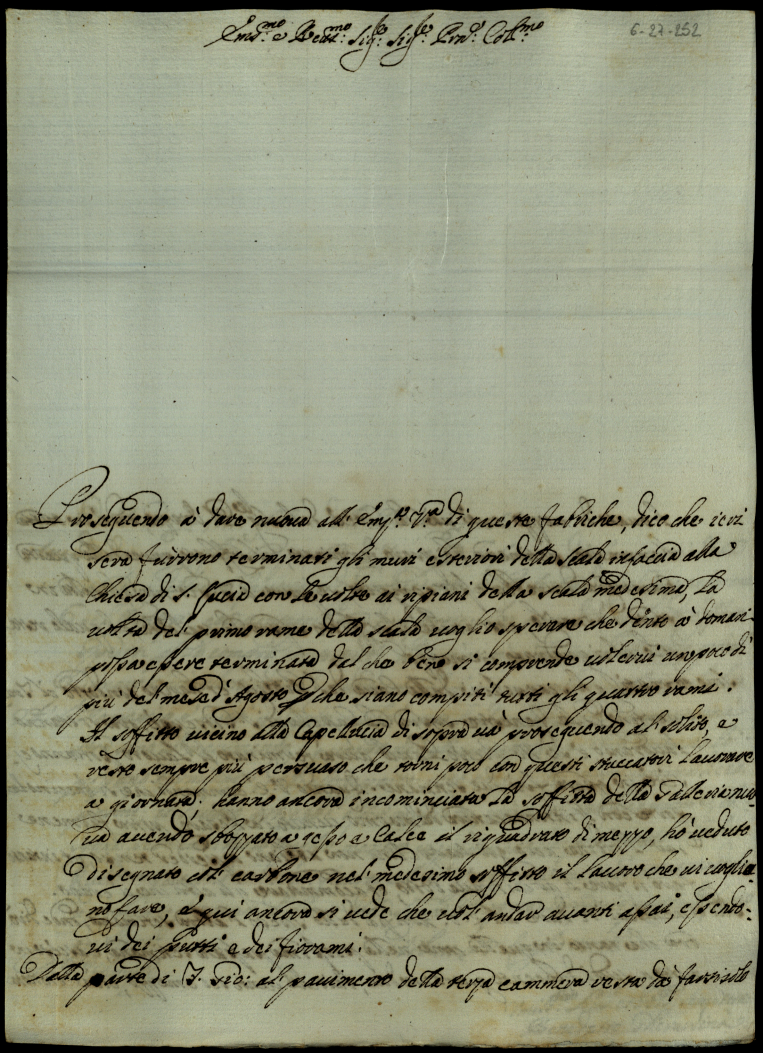 Em.mo e Rev.mo Sig.r Sig.r Pron. Col.mo
6-27-252
Proseguendo à dare nuova all' Em.za V.ra di queste fabriche, dico che ieri
sera furrono terminati gli muri esteriori della scala in facia alla
Chiesa di S. Lucia con le volte ai ripiani della scala medesima, la
volta del primo rame della scala voglio sperare che dentro à domani
possa essere terminata dal che bene si comprende volervi un poco di
più del mese d'Agosto perche siano compiti tutti gli quattro rami.
Il soffitto vicino alla Capelluccia di sopra và proseguendo al solito, e
resto sempre più persuaso che torni poco con questi stuccatori lavorare
a giornata; hanno ancora incominciata la soffitta della Galleria nuo-
va avendo sbozzato a gesso e calce il riquadrato di mezzo, hò veduto
disegnato col carbone nel medesimo soffitto il lavoro che vi voglia-
no fare, e qui ancora si vede che vol' andar avanti assai, essendo-
vi dei putti e dei fiorami.
Dalla parte di S. Gio: al pavimento della terza cammera resta da farsi solo